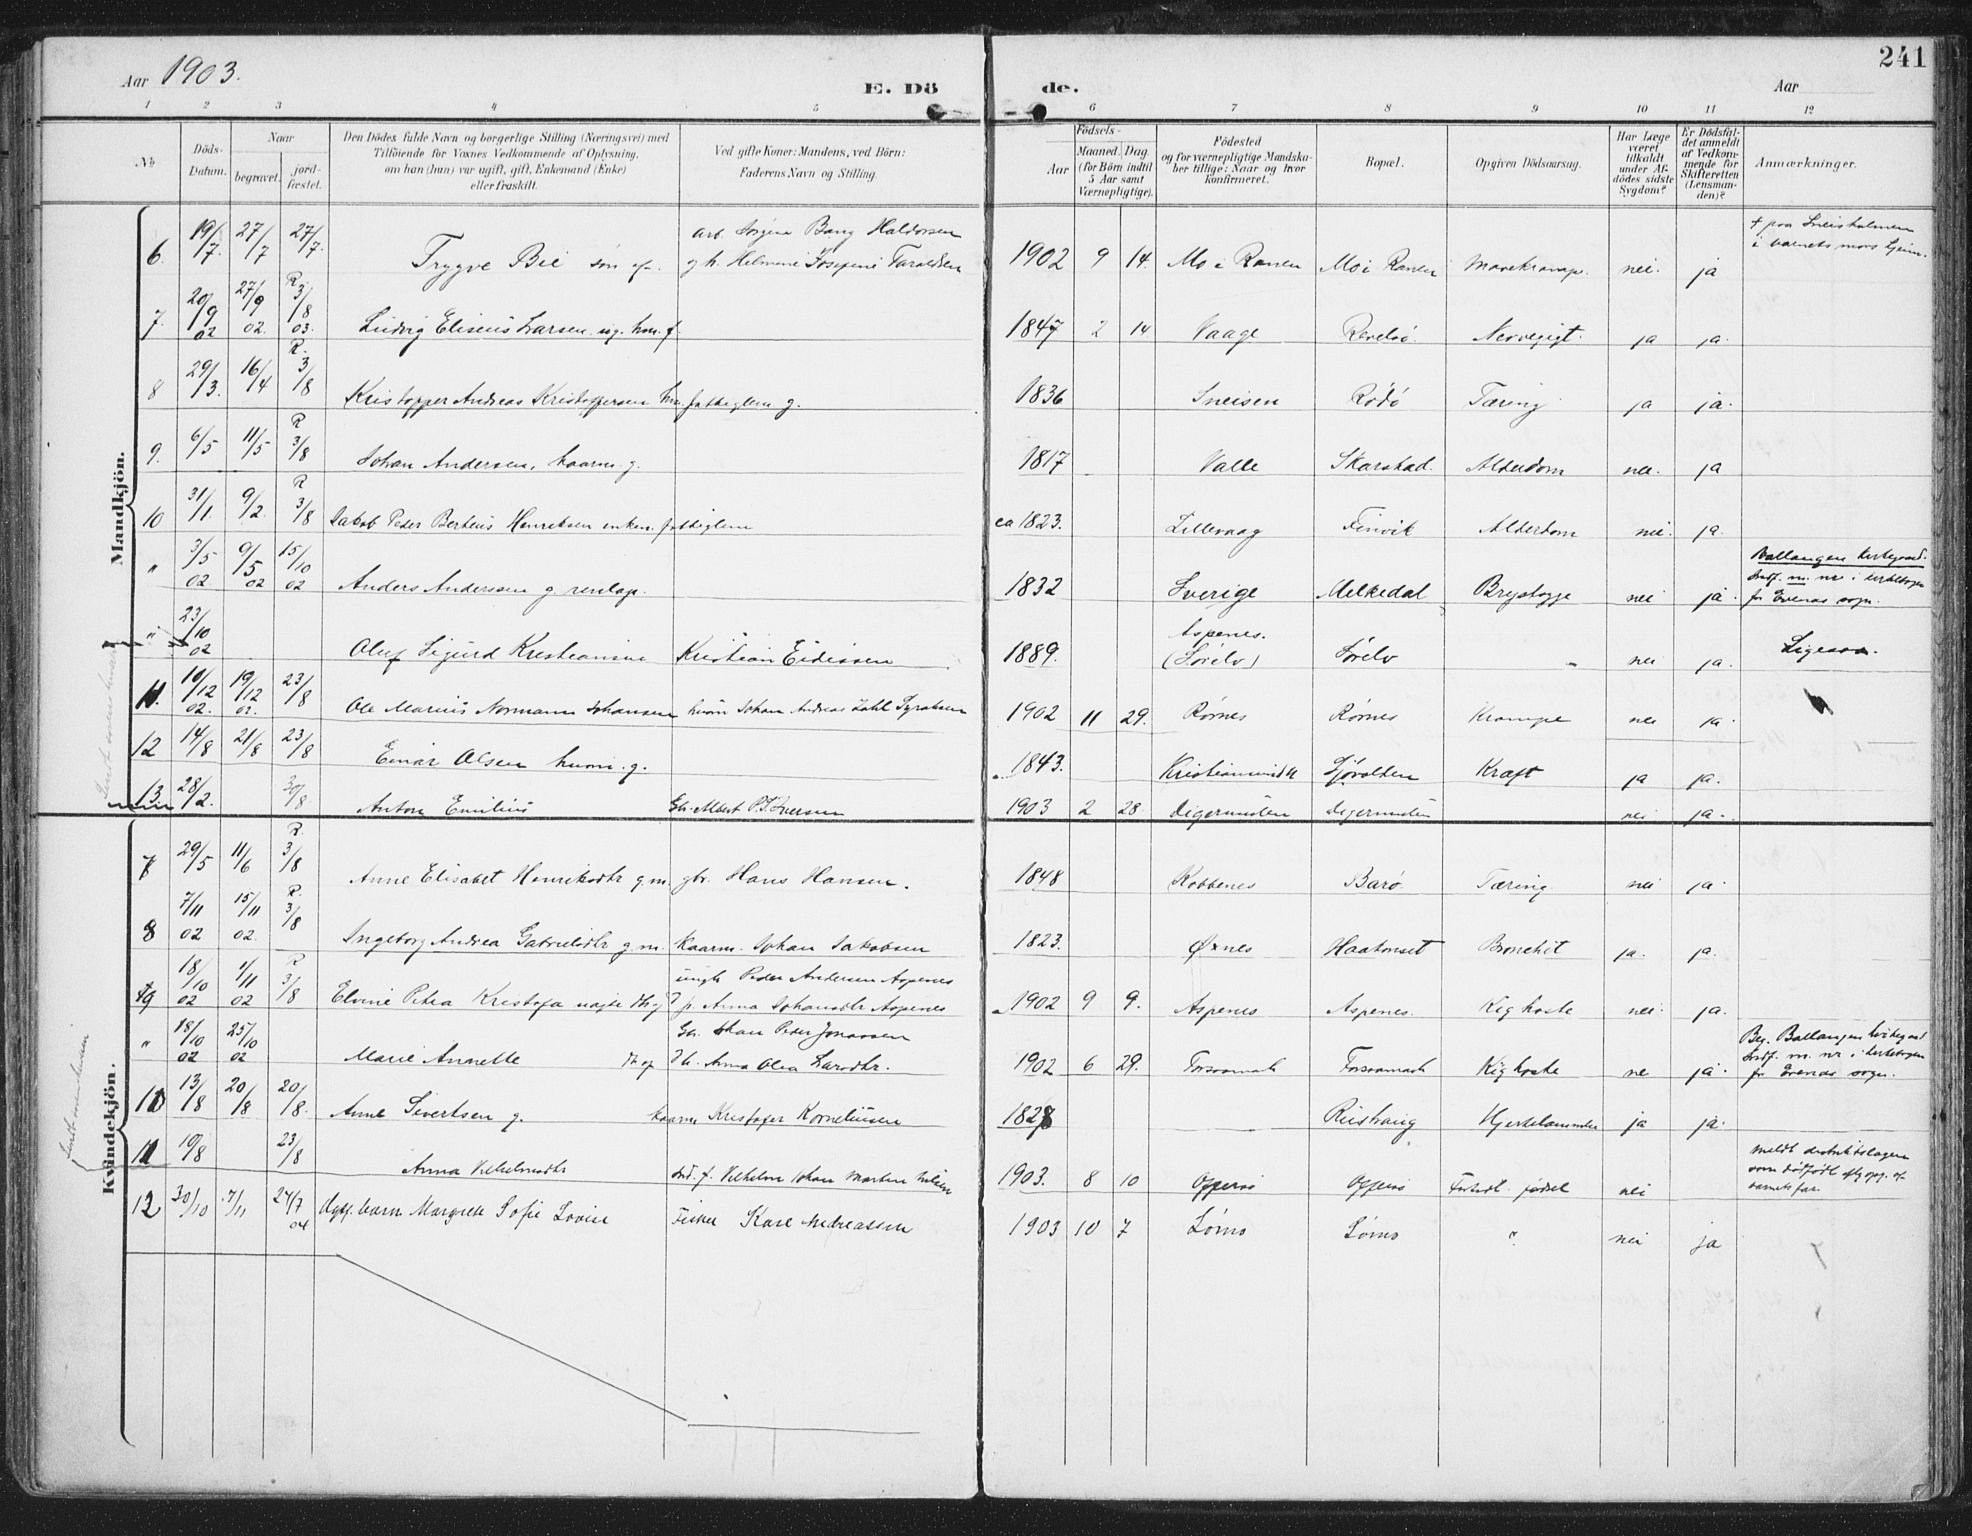 241
Aar 1903.
E. Dö de.
Aar
1 2 3 4 5 6 7 8 9 10 11 12
No
Döds-Datum.
Naar
begravet.
jord-fæstet.
Den Dödes fulde Navn og borgerlige Stilling (Næringsvei) med
Tilföiende for Voxnes Vedkommende af Oplysning,
om han (hun) var ugift, gift, Enkemand (Enke)
eller fraskilt.
Ved gifte Koner: Mandens, ved Börn:
Faderens Navn og Stilling.
Födsels-
Aar
Maaned. Dag
(for Börn indtil
5 Aar samt
Værnepligtige).
Födested
og for værnepligtige Mandska-
ber tillige: Naar og hvor
konfirmeret.
Bopæl.
Opgiven Dödsaarsag.
Har Læge
været
tilkaldt
under Af-
dödes sidste
Sygdom?
Er Dödsfal-
det anmeldt
af Vedkom-
mende for
Skifteretten
(Lensman-
den)?
Anmærkninger.
Mandkjön.
6. 19/7. 27/7 27/7. Trygve Bie søn af arb. Jørgen Bang Haldorsen
og h. Helmine Josefine Taraldsen 1902 9 14. Mo i Ranen Mo i Ranen nei. ja
7. 20/9 02 27/9 02. R 3/8 03. Ludvig Eliseus Larsen ug. 1847 2 14 Vaage Nervegigt. ja ja.
8 29/3. 16/4 R. 3/8 Kristopper Andreas Kristoffersen g. 1836 Sneisen Rödö Tæring ja ja.
9. 6/5 11/5 R 3/8 Johan Andersen, kaarm. g. 1817 Valle Skarstad. Alderdom nei. ja
10 31/1. 9/2. R 3/8 Jakob Peder Berteus Henriksen enkem. ca 1823. Lillevaag Finvik Alderdom nei. ja.
" 3/5 02 9/5 02 15/10 02 Anders Andersen g. renlap. 1832 Sverige Melkedal Brystsyge nei ja. Ballangen kirkegaard.
indf. u. nr i kirkebogen
for Evenes sogn.
" 23/10 02 Oluf Sigurd Kristiansen Kristian Eidissen 1889. Aspenes.
(Sørelv) Sørelv " nei ja. Ligesaa.
11. 10/12 02. 19/12 02. 23/8 Ole Marius Normann Johansen husm Johan Andreas Zahl 1902 11 29. Rørnes Rørnes Krampe nei ja.
12 14/8 21/8 23/8 Einar Olsen husm. g. 1843. Kristiansund Kræft ja ja.
13. 28/2. 30/8 Anton Emilius Gbr. Albert P. Iversen 1903 2 28. Digermulen Digermulen nei ja.
Kvindekjön.
7 29/5 11/6 R 3/8 Anne Elisabet Henriksdtr g.m. gbr. Hans Hansen. 1848 Kobbenes Barø. Tæring. nei ja.
8 7/11 02 15/11 02. R. 3/8 Ingeborg Andrea Gabrielsdtr g.m. kaarm. Johan Jakobsen 1823. Øxnes Haakonset Bronchit ja. ja.
9 18/10 02 1/11 02 R 3/8 Elvine Petra Kristofa uægte dtr af ungk Peder Andersen Aspenes
p. Anna Johansdtr Aspenes 1902 9 9. Aspenes Aspenes. Kighoste nei. ja.
" 18/10 02 25/10 02 Marie Annette dtr af Gbr. Johan Peder Jonassen
Anna Olea Larsdtr. 1902 6 29. Forsaamark Forsaamark Kighoste nei ja. Beg. Ballangen kirkegaard
indf. u. nr i kirkebogen
for Evenes sogn.
10 13/8 20/8 20/8. Anne Sivertsen g. kaarm Kristofer Korneliusen 1828 Riishaug ja ja.
11 10/8 23/8 Anna Vilhelmsdtr ind. f. Vilhelm Johan Martin Nilsen 1903. 8 10 Offersø Offersø Fortidl. födsel nei meldt distriktslægen
som dødfødt efter opg. af
barnets far.
12 30/10 7/11 24/7 04 barn Margrete Sofie Lovise Fisker Karl Andreassen 1903 10 7 Sørnes Sørnes " nei ja